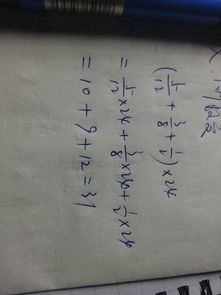 (5/12 + 3/8 + 1/2) × 24
= 5/12 × 24 + 3/8 × 24 + 1/2 × 24
= 10 + 9 + 12 = 31